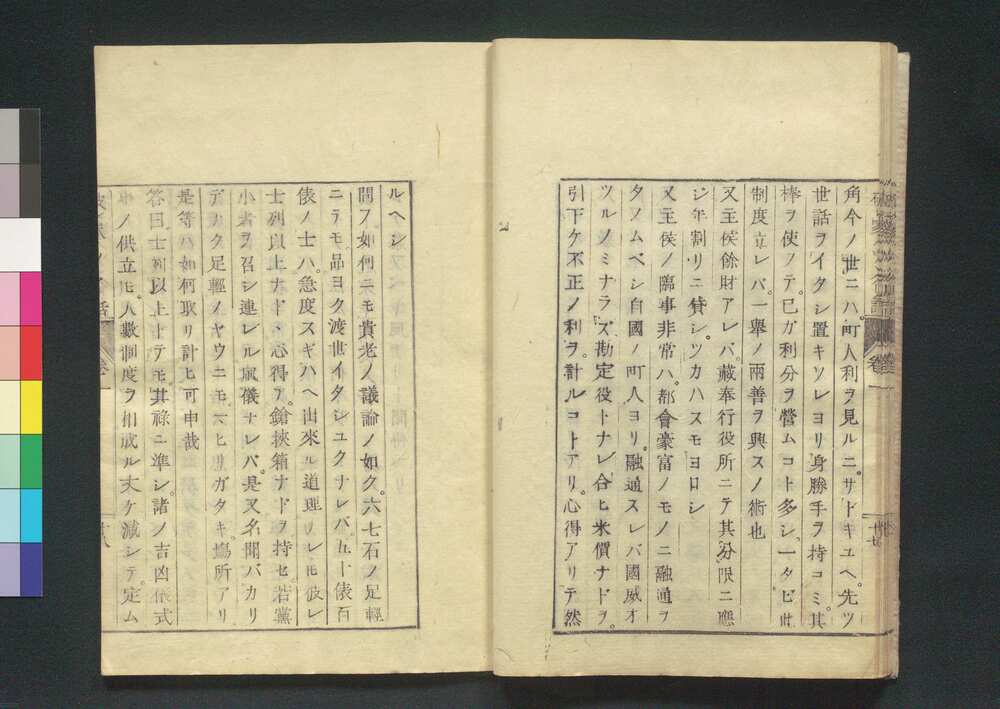 角今ノ世ニハ。町人利ヲ見ルニ。サトキユヘ。先ツ
世話ヲイタシ置キソレヨリ身勝手ヲ持コミ。其
棒ヲ使フテ。已ガ利分ヲ營ムコト多シ。一タビ此
制度立レバ。一擧ノ兩善ヲ興スノ術也
又主侯餘財アレバ。藏奉行役所ニテ其分限ニ應
ジ年割リニ貸シ。ツカハスモヨロシ
又主侯ノ臨事非常ハ。都會豪富ノモノニ融通ヲ
タノムベシ自國ノ町人ヨリ。融通スレバ國威オ
ツルノミナラズ勘定役トナレ合ヒ米價ナドヲ。
引下ケ不正ノ利ヲ。計ルコトアリ。心得アリテ然
ルヘシ
問フ如何ニモ貴老ノ議論ノ如ク。六七石ノ足輕
ニテモ品ヨク渡世イタシユクナレバ。五十俵百
俵ノ士ハ。急度スギハヘ出來ル道理ナレ𪜈彼レ
士列以上ナド丶心得テ。鎗挾箱ナドヲ持セ。若黨
小者ヲ召シ連レル風儀ナレバ。是又名聞バカリ
デナク足輕ノヤウニモ。スヒ出ガタキ。塲所アリ
是等ハ如何取リ計ヒ可申哉
答曰士列以上トテモ其祿ニ準シ。諸ノ吉凶依式
中ノ供立𪜈。人數制度ヲ相成ル丈ケ減シテ。定ム
卷一
卷一
廿七
廿八